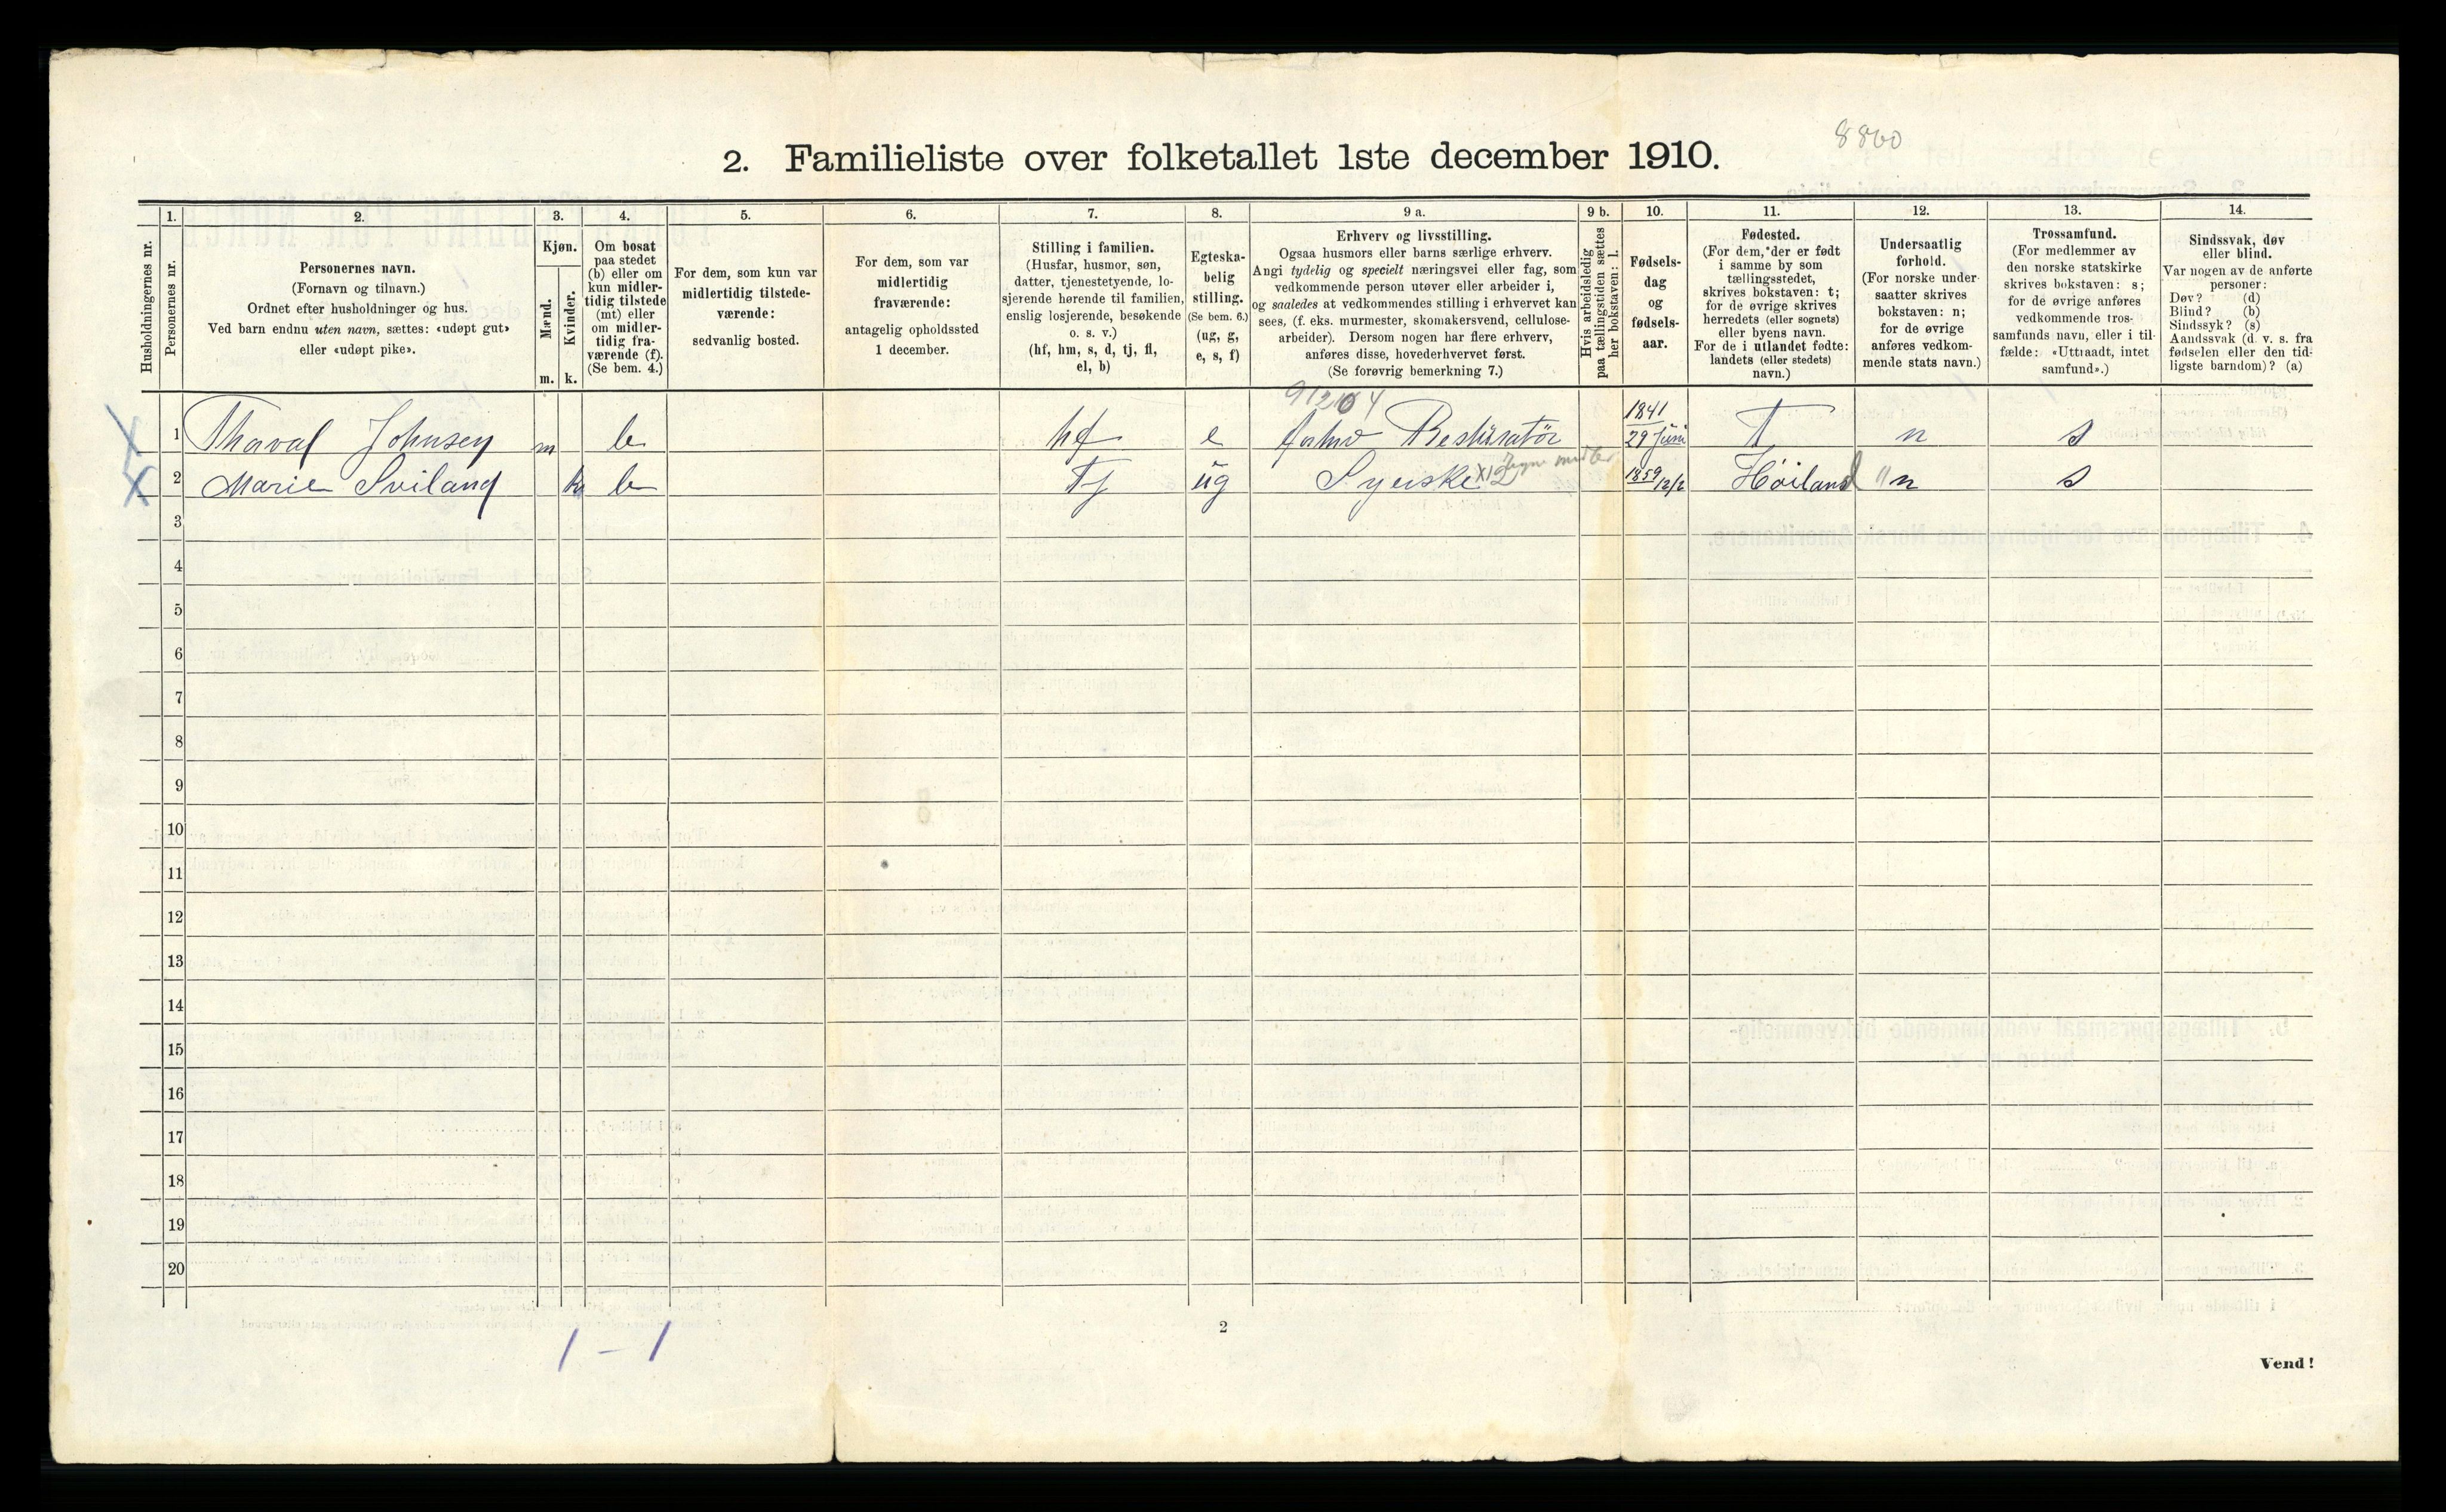 8860
2. Familieliste over folketallet 1ste december 1910.
1. 2. 3. 4. 5. 6. 7. 8. 9 a. 9 b. 10. 11. 12. 13. 14.
Husholdningernes nr.
Personernes nr.
Personernes navn.
(Fornavn og tilnavn.)
Ordnet efter husholdninger og hus.
Ved barn endnu uten navn, sættes: «udøpt gut»
eller «udøpt pike».
Kjøn.
Mænd.
Kvinder.
m. k.
Om bosat
paa stedet
(b) eller om
kun midler-
tidig tilstede
(mt) eller
om midler-
tidig fra-
værende (f).
(Se bem. 4.)
For dem, som kun var
midlertidig tilstede-
værende:
sedvanlig bosted.
For dem, som var
midlertidig
fraværende:
antagelig opholdssted
1 december.
Stilling i familien.
(Husfar, husmor, søn,
datter, tjenestetyende, lo-
sjerende hørende til familien,
enslig losjerende, besøkende
o. s. v.)
(hf, hm, s, d, tj, fl,
el, b)
Egteska-
belig
stilling.
(Se bem. 6.)
(ug, g,
e, s, f)
Erhverv og livsstilling.
Ogsaa husmors eller barns særlige erhverv.
Angi tydelig og specielt næringsvei eller fag, som
vedkommende person utøver eller arbeider i,
og saaledes at vedkommendes stilling i erhvervet kan
sees, (f. eks. murmester, skomakersvend, cellulose-
arbeider). Dersom nogen har flere erhverv,
anføres disse, hovederhvervet først.
(Se forøvrig bemerkning 7.)
Hvis arbeidsledig
paa tællingstiden sættes
her bokstaven: l.
Fødsels-
dag
og
fødsels-
aar.
Fødested.
(For dem, der er født
i samme by som
tællingsstedet,
skrives bokstaven: t;
for de øvrige skrives
herredets (eller sognets)
eller byens navn.
For de i utlandet fødte:
landets (eller stedets)
navn.)
Undersaatlig
forhold.
(For norske under-
saatter skrives
bokstaven: n;
for de øvrige
anføres vedkom-
mende stats navn.)
Trossamfund.
(For medlemmer av
den norske statskirke
skrives bokstaven: s;
for de øvrige anføres
vedkommende tros-
samfunds navn, eller i til-
fælde: «Uttraadt, intet
samfund».)
Sindssvak, døv
eller blind.
Var nogen av de anførte
personer:
Døv? (d)
Blind? (b)
Sindssyk? (s)
Aandssvak (d. v. s. fra
fødselen eller den tid-
ligste barndom)? (a)
1 Thoval Johnsen m b hf e Restüratör 1841 29 Juni t n s
2 Marie Sviland k b Tj üg Syerske 1859 12/2 Höiland n s
3
4
5
6
7
8
9
10
11
12
13
14
15
16
17
18
19
20
1 - 1
2
Vend!